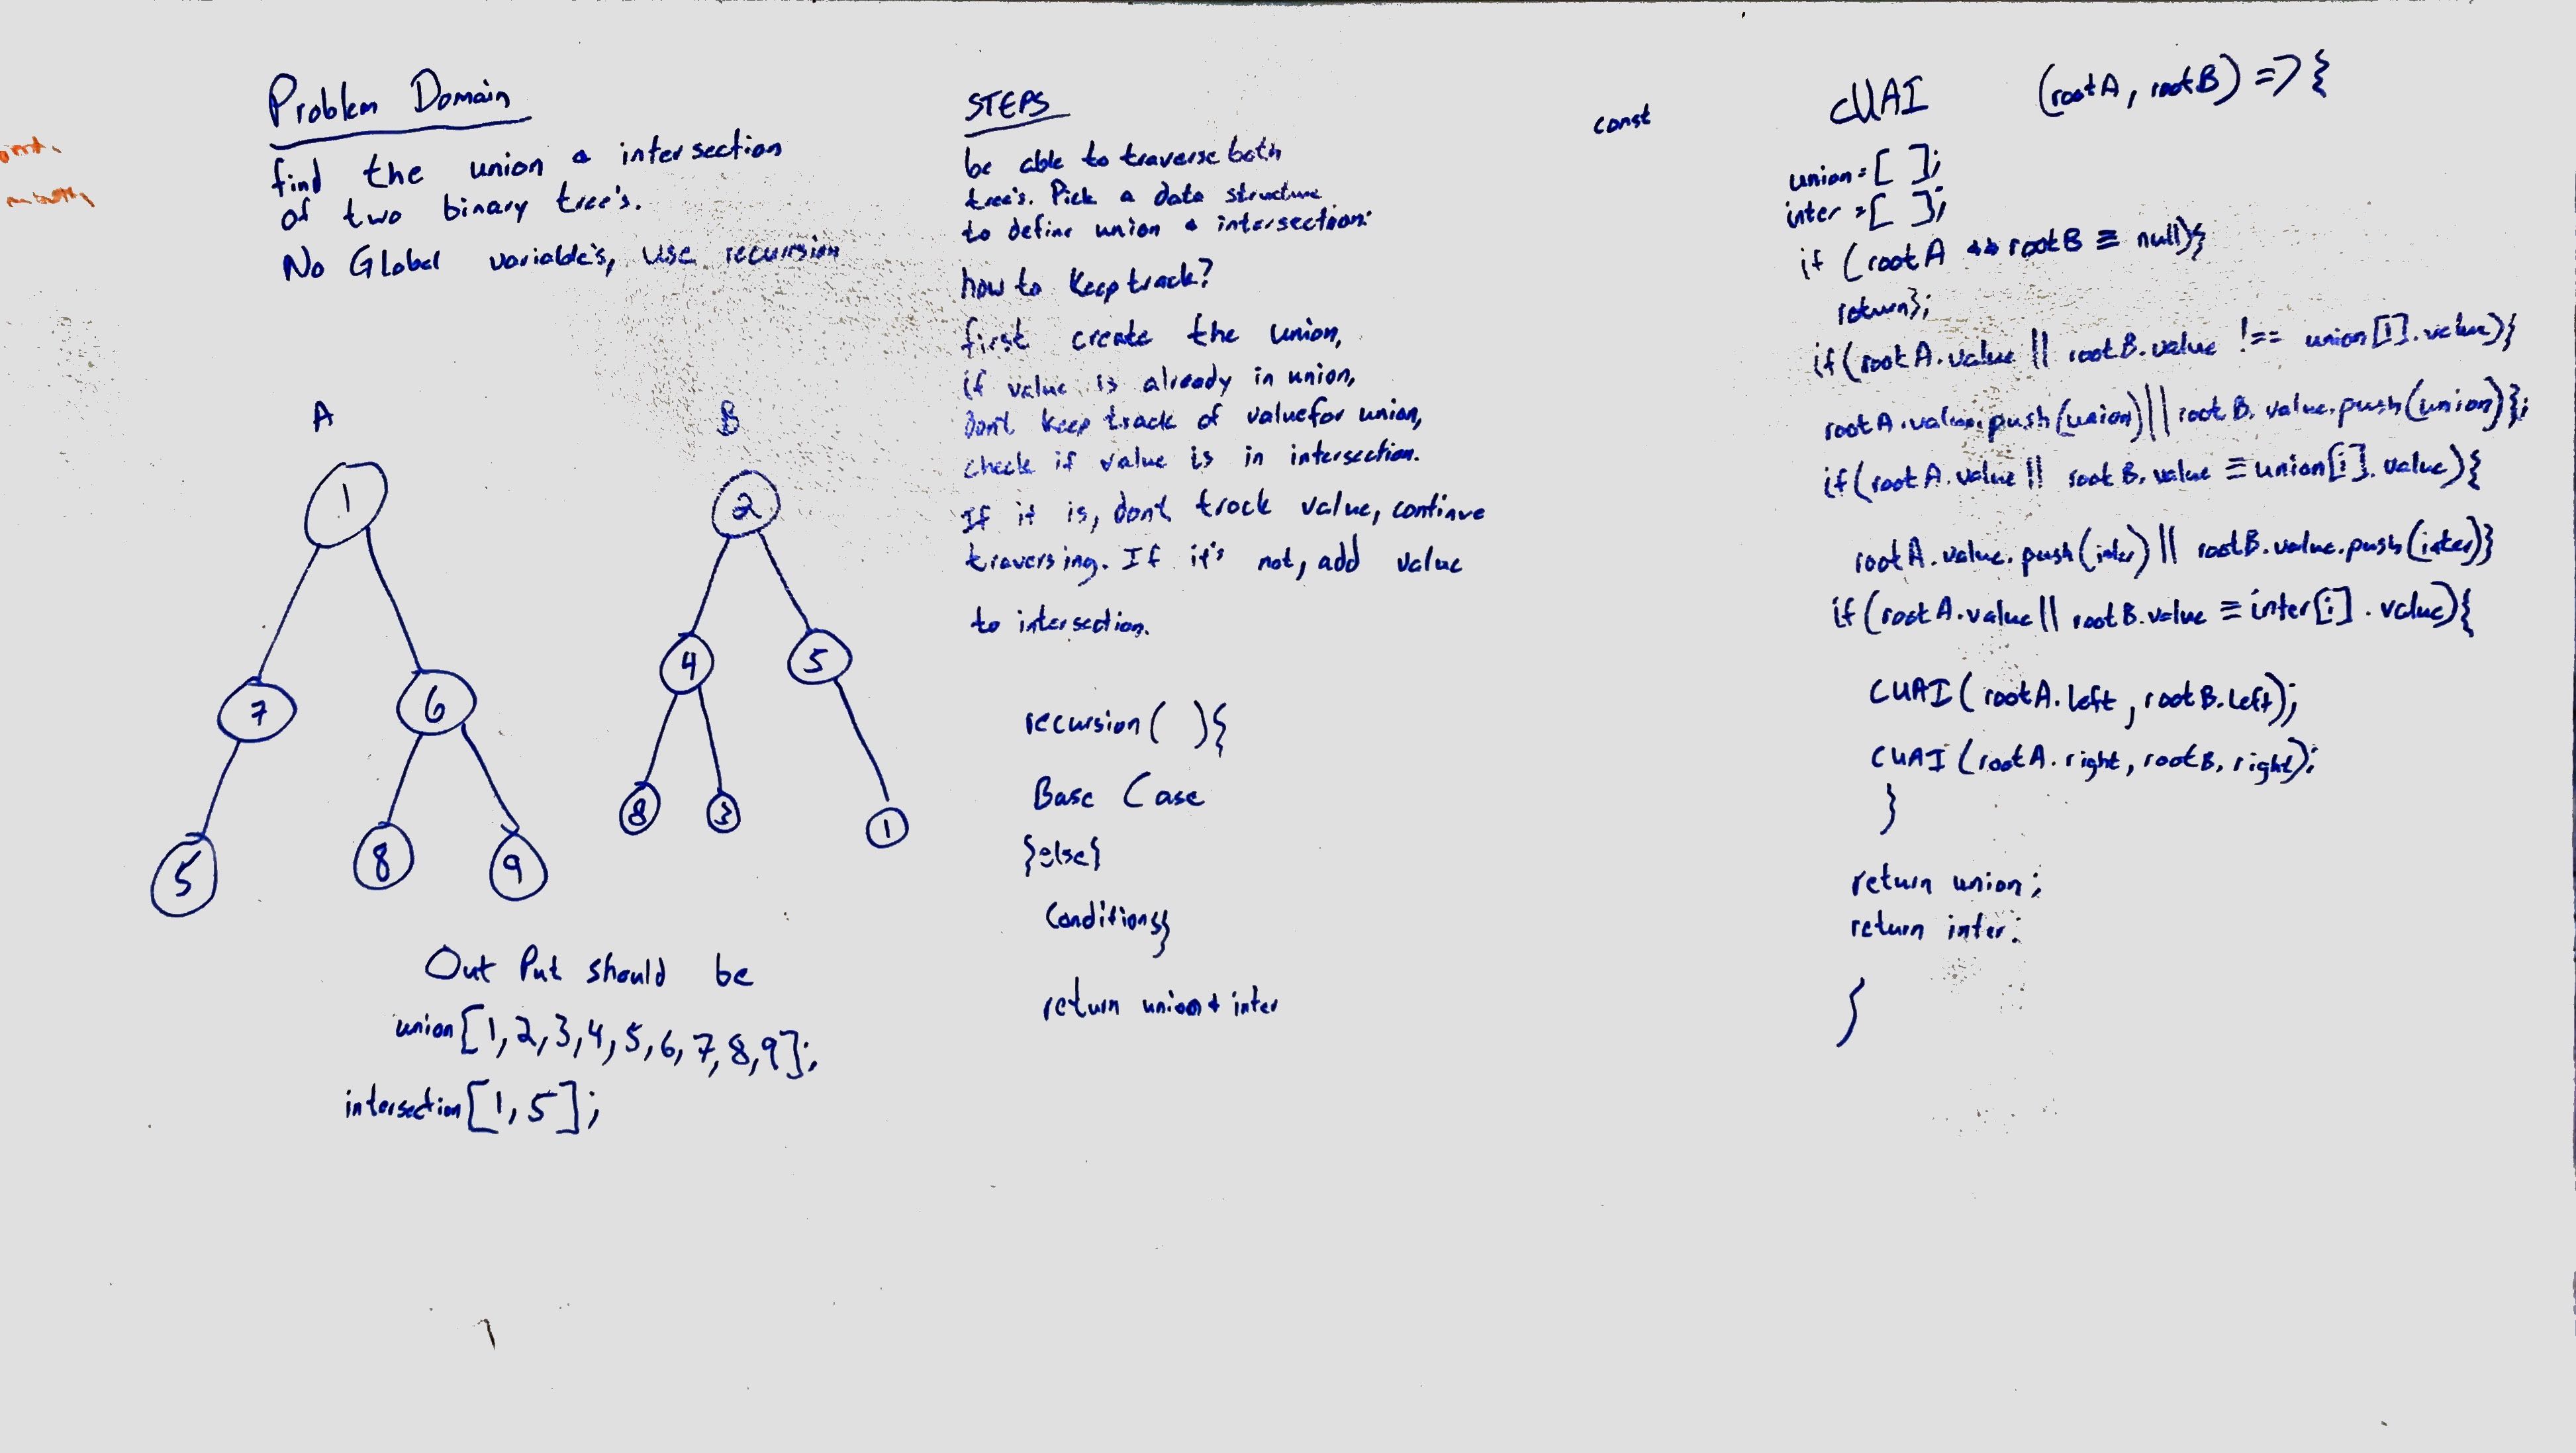 Problem Domain
find the union & intersection
of two binary tree's.
No Global variable's, use recursion
A
1
7
6
5
8
9
B
2
4
5
8
3
1
Out Put should be
union[1,2,3,4,5,6,7,8,9];
intersection[1,5];
STEPS
be able to traverse both
tree's. Pick a data structure
to define union & intersection:
how to keep track?
first create the union,
if value is already in union,
Don't keep track of value for union,
check if value is in intersection.
If it is, don't track value, continue
traversing. If it's not, add value
to intersection.
recursion( ){
Base Case
}else{
Conditions}
return union & inter
const CUAI (rootA, rootB) => {
union = [ ];
inter = [ ];
if (rootA && rootB ≡ null){
return};
if (rootA.value || rootB.value !== union[i].value){
rootA.value.push(union) || rootB.value.push(union)};
if (rootA.value || rootB.value ≡ union[i].value){
rootA.value.push(inter) || rootB.value.push(inter)}
if (rootA.value || rootB.value ≡ inter[i].value){
CUAI(rootA.left, rootB.left);
CUAI(rootA.right, rootB.right);
}
return union;
return inter;
}